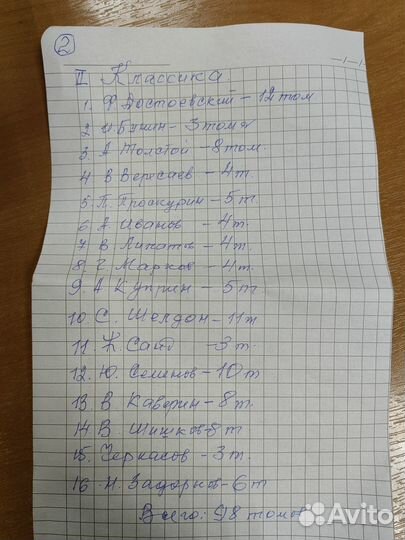 2
II Классика.
1. Ф Достоевский - 12 том
2 И. Бунин - 3 тома
3. А Толстой - 8 том.
4 В Вересаев - 4 т.
5. П. Проскурин - 5 т.
6 А. Иванов - 4 т.
7 В Липатов - 4 т.
8. Г. Марков - 4 т.
9. А Куприн - 5 т
10. С. Шелдон - 11 т
11. Ж Санд - 3 т.
12. Ю. Семенов - 10 т
13 В. Каверин - 8 т.
14 В. Шишков - 8 т
15. Черкасов - 3 т.
16. Н. Задорнов - 6 т
Всего: 98 томов
Avito